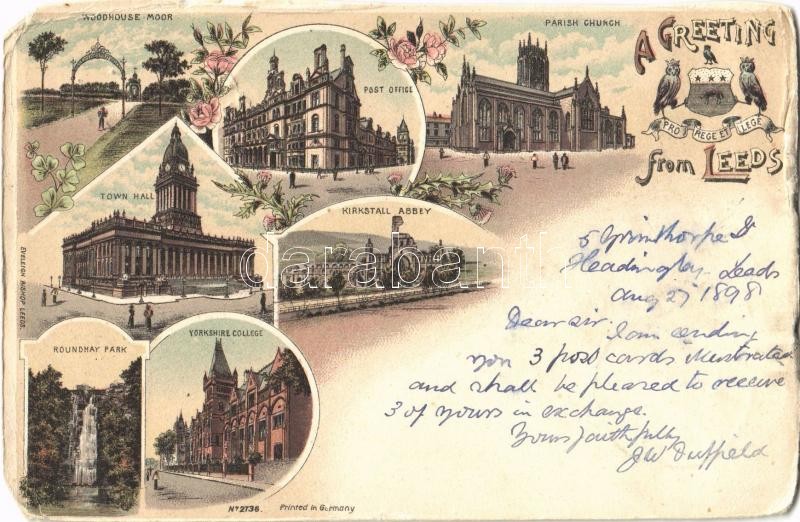 WOODHOUSE MOOR
POST OFFICE
PARISH CHURCH
A GREETING
PRO REGE ET LEGE
from LEEDS
TOWN HALL
KIRKSTALL ABBEY
EVELEIGH BISHOP LEEDS.
ROUNDHAY PARK
YORKSHIRE COLLEGE
No 2736.
Printed in Germany
darabanth.com
5
Headingley Leeds
Aug 27 1898
Dear sir. I am sending
you 3 post cards illustrated
and shall be pleased to receive
3 of yours in exchange.
Yours faithfully
JW Duffield